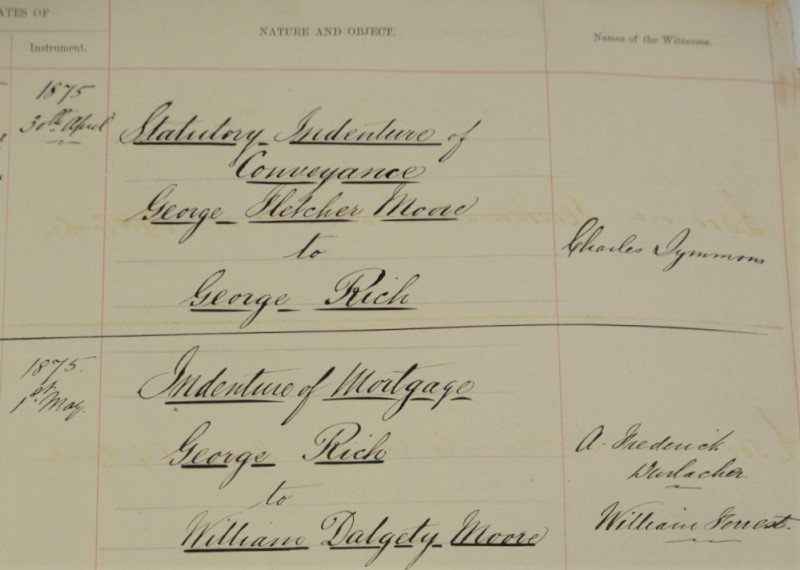 ATES OF
NATURE AND OBJECT.
Names of the Witnesses.
Instrument.
1875
30th April
Statutory Indenture of
Conveyance
George Fletcher Moore
to
George Rich
Charles Symmons
1875.
1st May.
Indenture of Mortgage
George Rich
to
William Dalgety Moore
A. Frederick
Durlacher
William Forrest.